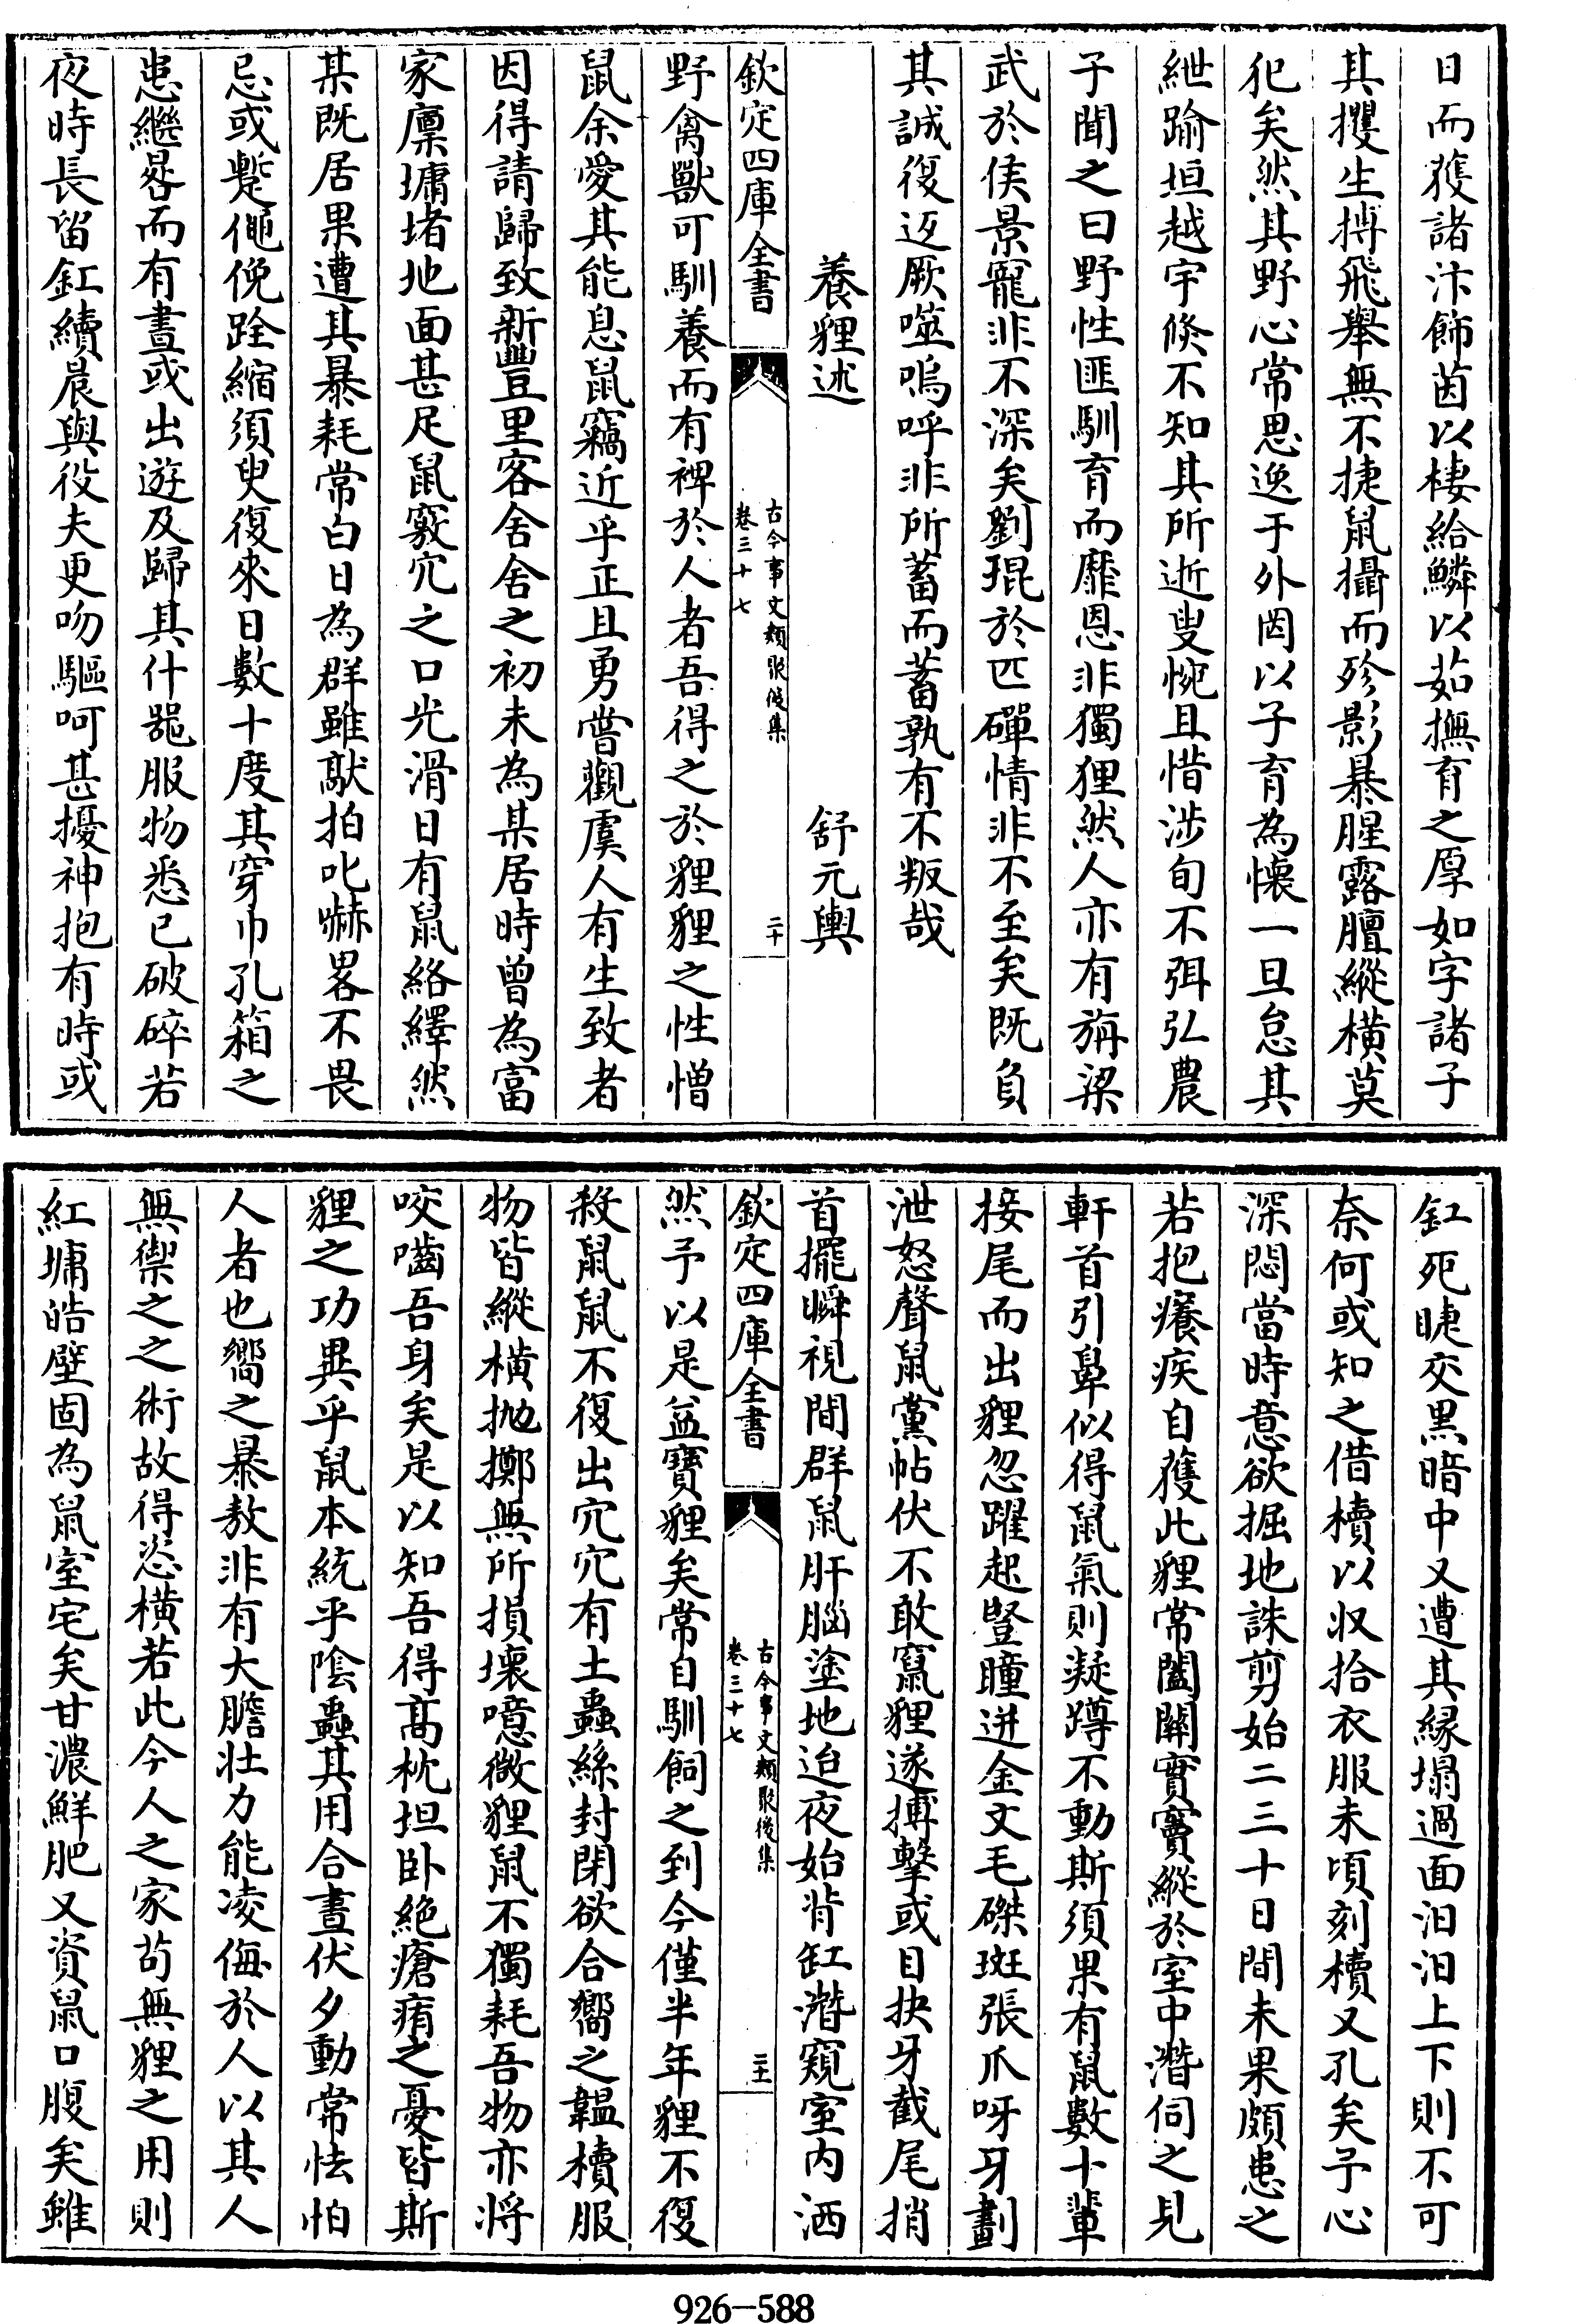 日而獲諸汴飾茵以棲給鱗以茹撫育之厚如字諸子
其攫生搏飛舉無不捷鼠攝而殄影暴腥露膻縱橫莫
犯矣然其野心常思逸于外罔以子育為懷一旦怠其
紲踰垣越宇倐不知其所逝叟惋且惜涉旬不弭弘農
子聞之曰野性匪馴育而靡恩非獨狸然人亦有旃梁
武於侯景寵非不深矣劉琨於匹磾情非不至矣既負
其誠復返厥噬嗚呼非所蓄而蓄孰有不叛哉
養貍述 舒元輿
欽定四庫全書
古今事文類聚後集
卷三十七
二十
野禽獸可馴養而有裨於人者吾得之於貍貍之性憎
鼠余愛其能息鼠竊近乎正且勇嘗觀虞人有生致者
因得請歸致新豐里客舍舍之初未為某居時曾為富
家廩墉堵地面甚足鼠竅穴之口光滑日有鼠絡繹然
某既居果遭其暴耗常白日為群雖敲拍叱嚇畧不畏
忌或蹔僶俛跧縮須臾復來日數十度其穿巾孔箱之
患繼晷而有晝或出遊及歸其什器服物悉已破碎若
夜時長留釭續晨與役夫更吻驅呵甚擾神抱有時或
釭死睫交黑暗中又遭其緣塌過面汩汩上下則不可
奈何或知之借櫝以収拾衣服未頃刻櫝又孔矣予心
深悶當時意欲掘地誅剪始二三十日間未果頗患之
若抱癢疾自獲此貍常闔關實竇縱於室中潛伺之見
軒首引鼻似得鼠氣則凝蹲不動斯須果有鼠數十輩
接尾而出貍忽躍起豎瞳迸金文毛磔斑張爪呀牙劃
泄怒聲鼠黨帖伏不敢竄貍遂搏擊或目抉牙截尾捎
首擺瞬視間群鼠肝腦塗地迨夜始背缸潛窺室内洒
欽定四庫全書
古今事文類聚後集
卷三十七
二十一
然予以是益寶貍矣常自馴飼之到今僅半年貍不復
殺鼠鼠不復出穴穴有土蟲絲封閉欲合嚮之韞櫝服
物皆縱橫抛擲無所損壞噫微貍鼠不獨耗吾物亦将
咬嚙吾身矣是以知吾得髙枕坦卧絶瘡痏之憂皆斯
貍之功異乎鼠本統乎陰蟲其用合晝伏夕動常怯怕
人者也嚮之暴敖非有大膽壯力能凌侮於人以其人
無禦之之術故得恣橫若此今人之家苟無貍之用則
紅墉皓壁固為鼠室宅矣甘濃鮮肥又資鼠口腹矣雖
926-588